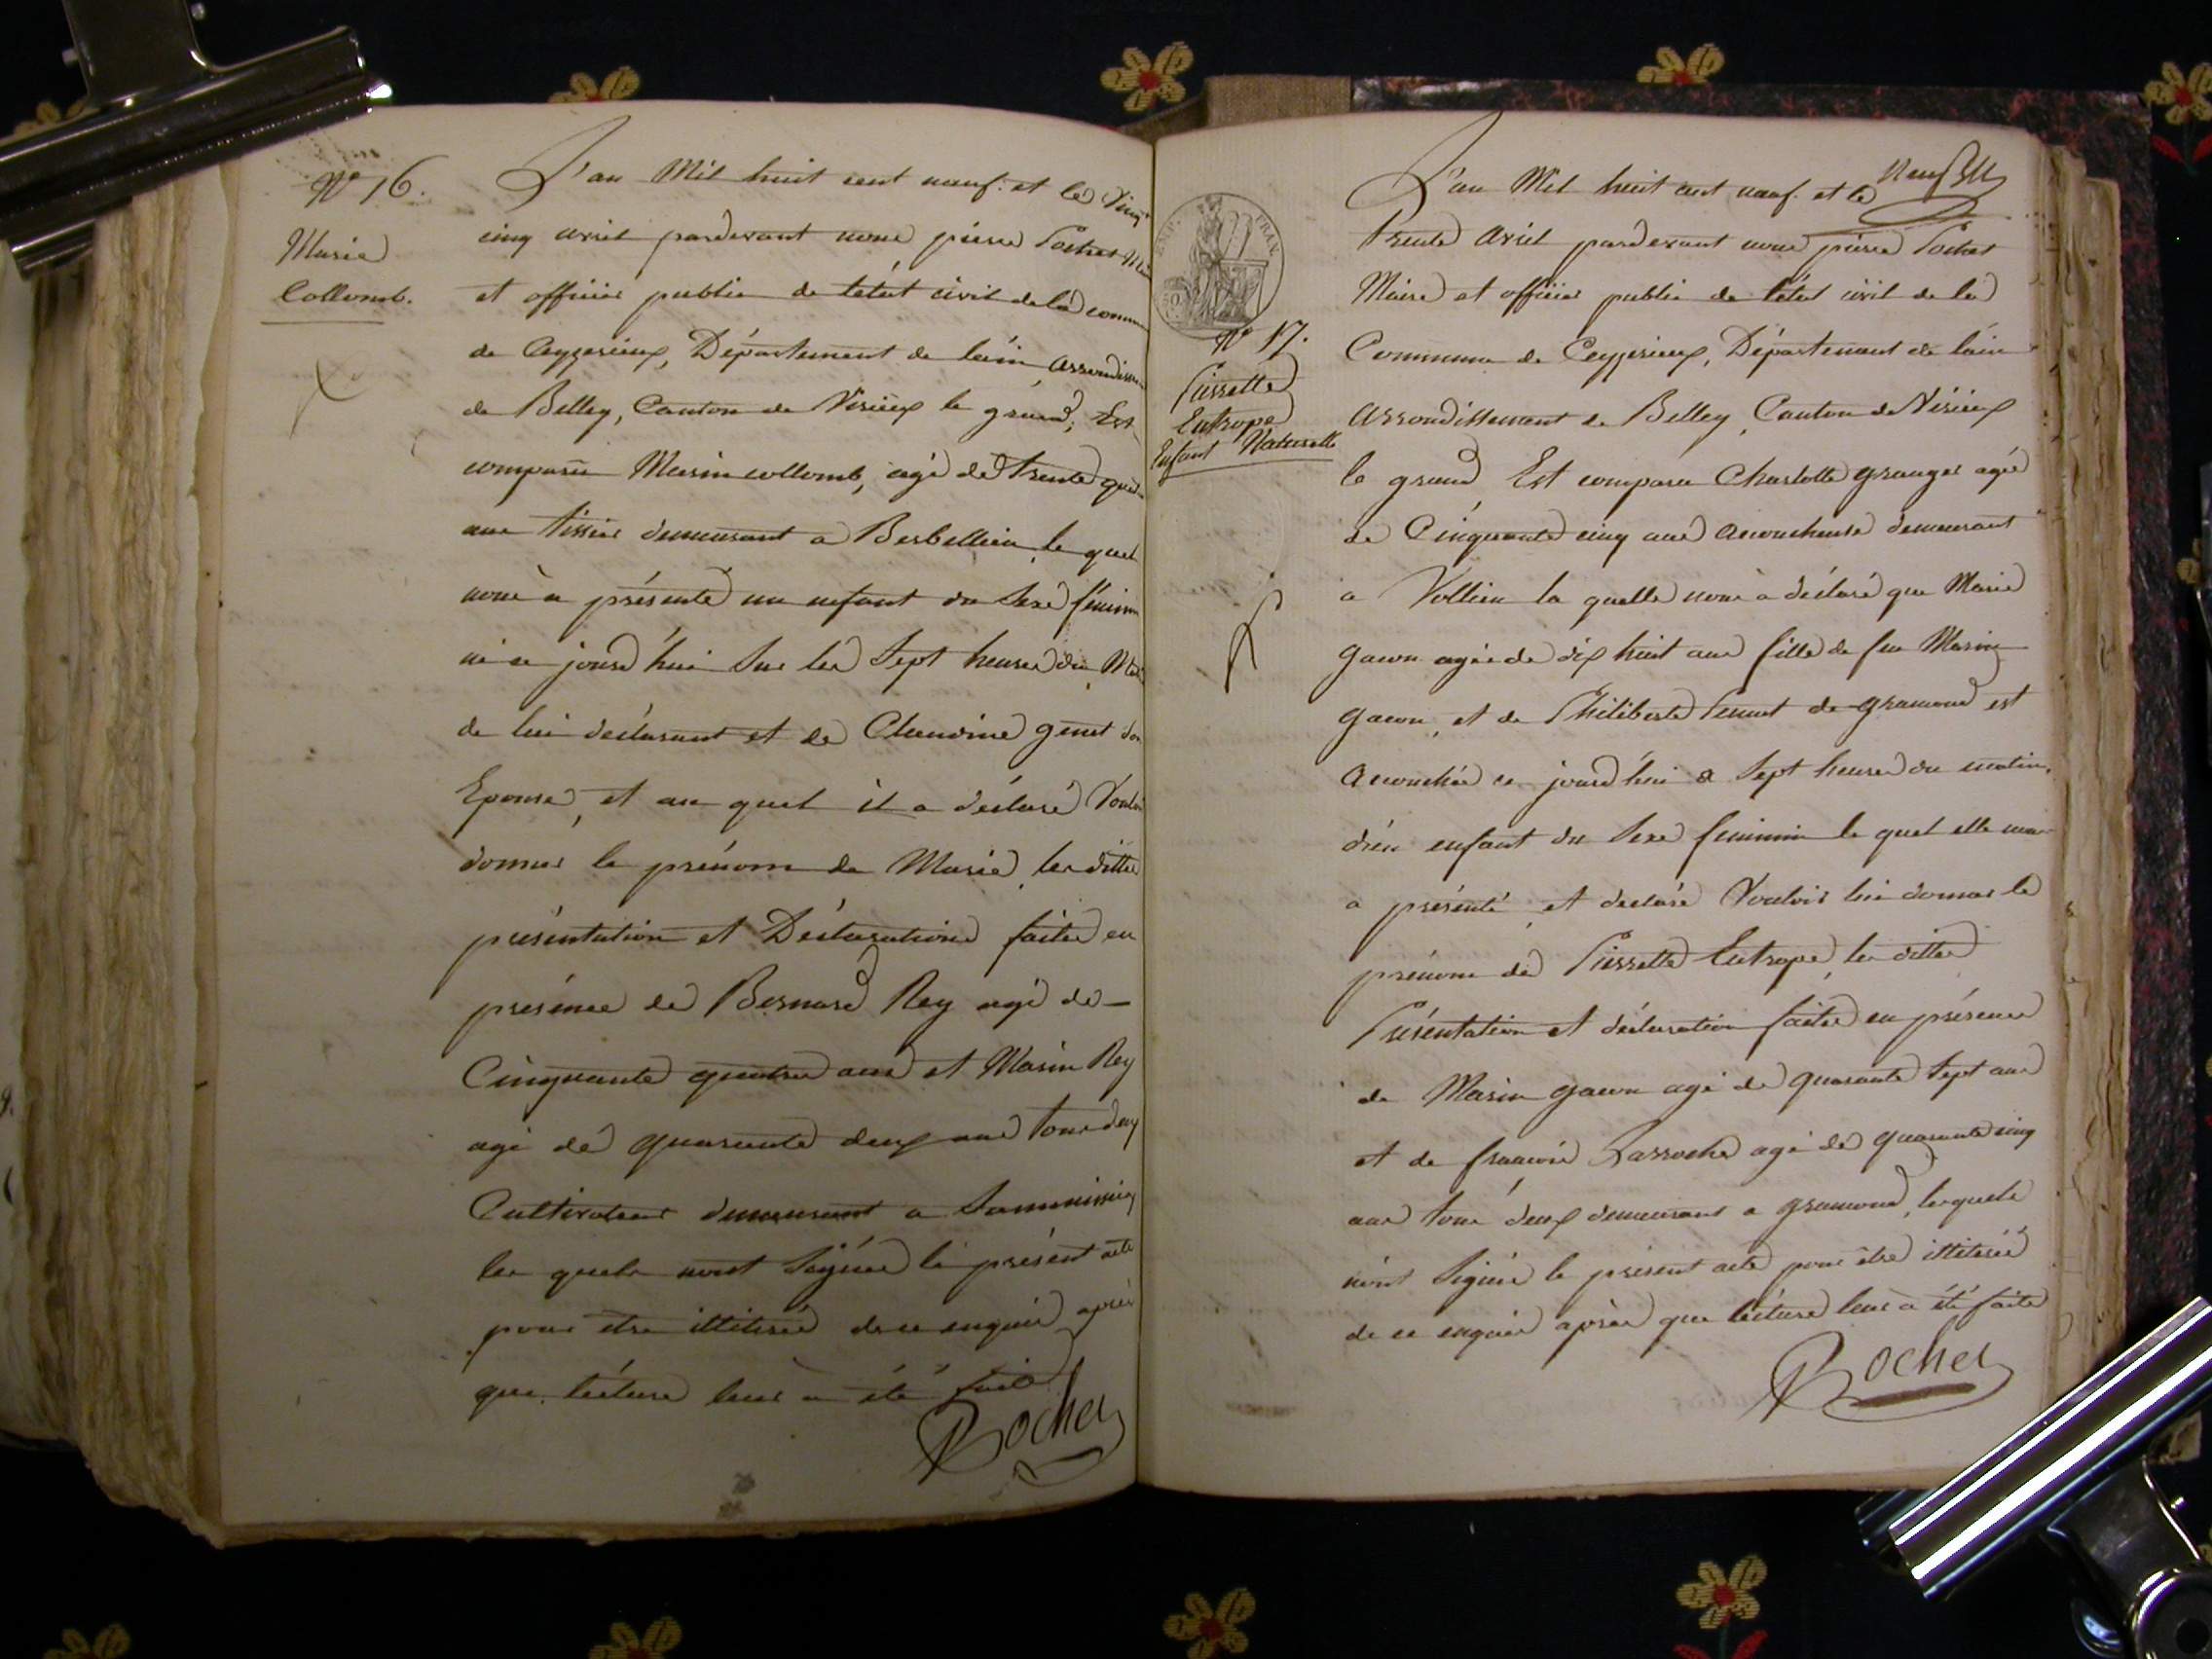 N° 16.
Marie
Collomb.
L'an Mil huit cent neuf. et le Vingt
cinq avril pardevant nous pierre Pochet
et officier public de l'état civil de la commune
de Ceyzerieux, Département de lain arrondissem
de Belley, Canton de Virieux le grand, Est
comparu Marin collomb, agé de trente quatre
ans tissier demeurant a Berbellieu le quel
nous à présenté un enfant du Sexe féminin
né ce jourd'hui Sur les Sept heures du Matin
de lui déclarant et de Claudine genet son
Epouse, et au quel il a déclaré Vouloir
donner le prénom de Marie, les dittes
présentation et Déclarations faites en
présence de Bernard Rey agé de
Cinquante quatre ans et Marin Rey
agé de quarante deux ans tous deux
Cultivateur demeurant a
les quels n'ont Signés le présent acte
pour être illiterés de ce enquis après
que lecture leur à été faite
Pochet
IMP. FRAN.
N° 17.
Pierrette
Eutrope
Enfant Naturelle
neuf
L'an Mil huit cent neuf. et le
Trente Avril pardevant nous pierre Pochet
Maire et officier public de l'état civil de la
Commune de Ceyzerieux, Département de lain
arrondissement de Belley, Canton de Virieux
le grand, Est comparu Charlotte granger agée
de Cinquante cinq ans accoucheuse demeurant
a Vollien la quelle nous à déclaré que Marie
gacon agée de dix huit ans fille de feu Marin
gacon, et de Philiberte de gramond est
accouchée ce jourd'hui a Sept heures du matin,
d'un enfant du Sexe feminin le quel elle nous
a présenté et declaré Vouloir lui donner le
prénom de Pierrette Eutrope, les dittes
Présentation et déclaration faites en présence
de Marin gacon agé de quarante Sept ans
et de francois Larroche agé de quarante cinq
ans tous deux demeurant a gramond, lesquels
n'ont Signés le présent acte pour être illiterés
de ce enquis après que lecture leur à été faite
Pochet